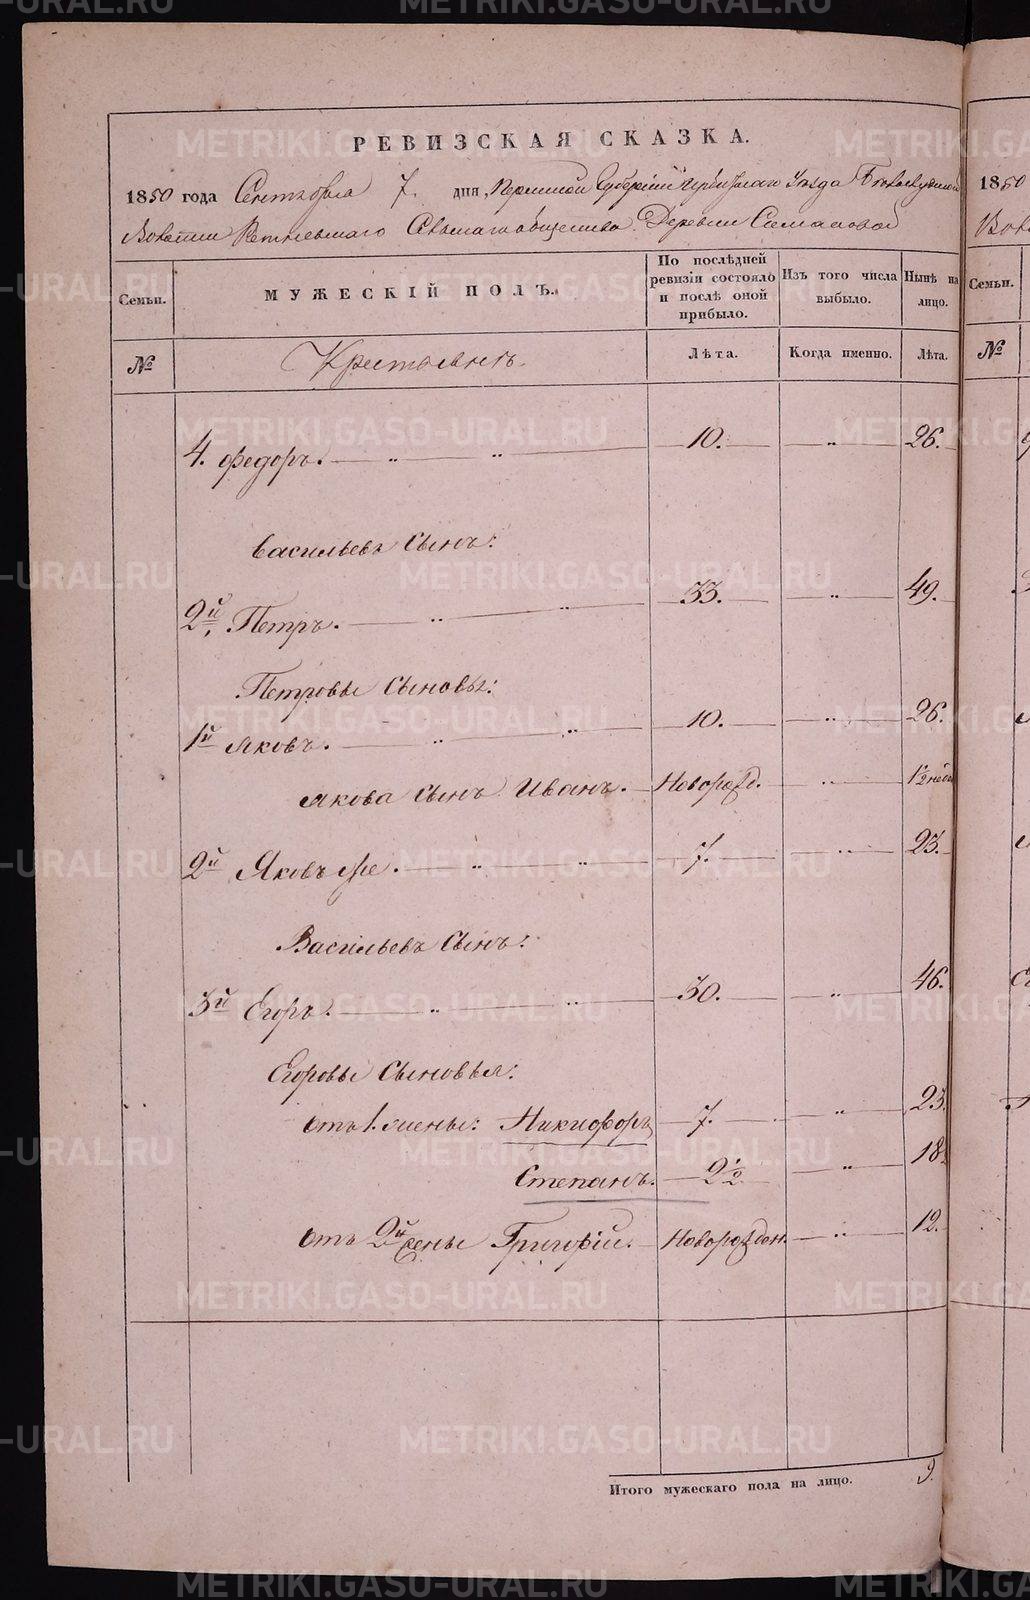 РЕВИЗСКАЯ СКАЗКА.
1850 года Сентября 7. дня, Пермской Губернии Ирбитскаго Уезда Белослудской
Волости Ретневскаго Сельскаго общества. Деревни Симановой
1850
Семьи.
МУЖЕСКІЙ ПОЛЪ.
По послѣдней ревизіи состояло и послѣ оной прибыло.
Изъ того числа выбыло.
Нынѣ на лицо.
Семьи.
№
Крестьянъ.
Лѣта.
Когда именно.
Лѣта.
№
4. Федоръ. — „ „ 10. — „ — 26.
Васильевъ Сынъ:
2й Петръ. — „ „ 33. — „ — 49.
Петровы Сыновья:
1й Яковъ. — „ „ 10. — „ — 26.
Якова сынъ Иванъ. — Новорожд. — „ — 1/2 нед
2й Яковъ же. — „ „ 7. — „ — 23.
Васильевъ Сынъ:
3й Егоръ. — „ „ 30. — „ — 46.
Егоровы Сыновья:
отъ 1. жены: Никифоръ — 7. — „ — 23.
Степанъ. — 2 1/2 — „ — 18 1/2
отъ 2й жены Григорій. — Новорожден. — „ — 12.
Итого мужескаго пола на лицо. 9.
METRIKI.GASO-URAL.RU